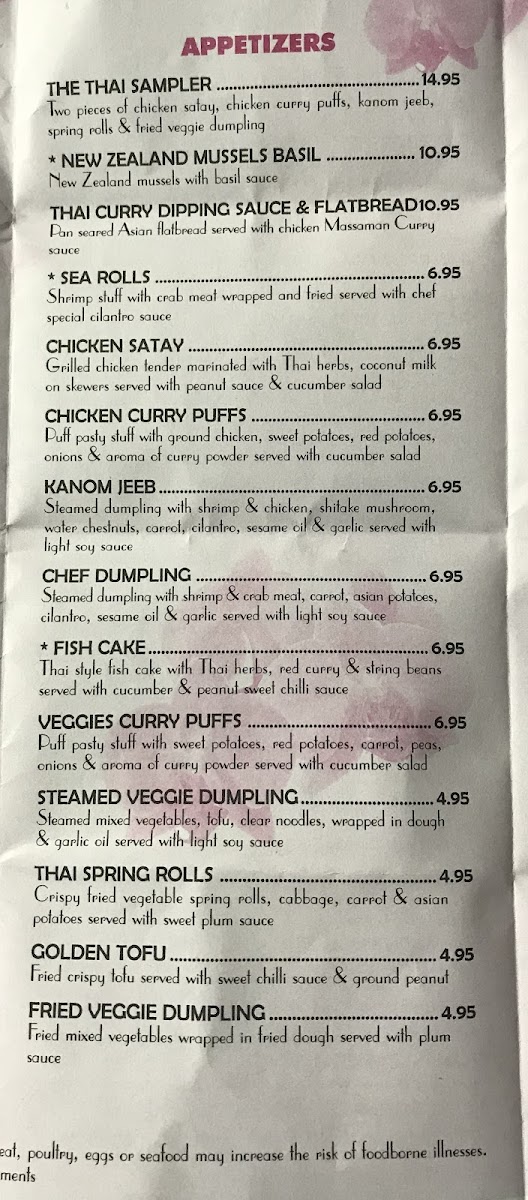 APPETIZERS
THE THAI SAMPLER ................................................ 14.95
Two pieces of chicken satay, chicken curry puffs, kanom jeeb,
spring rolls & fried veggie dumpling
* NEW ZEALAND MUSSELS BASIL ..................... 10.95
New Zealand mussels with basil sauce
THAI CURRY DIPPING SAUCE & FLATBREAD10.95
Pan seared Asian flatbread served with chicken Massaman Curry
sauce
* SEA ROLLS ............................................................... 6.95
Shrimp stuff with crab meat wrapped and fried served with chef
special cilantro sauce
CHICKEN SATAY ....................................................... 6.95
Grilled chicken tender marinated with Thai herbs, coconut milk
on skewers served with peanut sauce & cucumber salad
CHICKEN CURRY PUFFS ........................................ 6.95
Puff pasty stuff with ground chicken, sweet potatoes, red potatoes,
onions & aroma of curry powder served with cucumber salad
KANOM JEEB .............................................................. 6.95
Steamed dumpling with shrimp & chicken, shitake mushroom,
water chestnuts, carrot, cilantro, sesame oil & garlic served with
light soy sauce
CHEF DUMPLING ..................................................... 6.95
Steamed dumpling with shrimp & crab meat, carrot, asian potatoes,
cilantro, sesame oil & garlic served with light soy sauce
* FISH CAKE................................................................. 6.95
Thai style fish cake with Thai herbs, red curry & string beans
served with cucumber & peanut sweet chilli sauce
VEGGIES CURRY PUFFS .......................................... 6.95
Puff pasty stuff with sweet potatoes, red potatoes, carrot, peas,
onions & aroma of curry powder served with cucumber salad
STEAMED VEGGIE DUMPLING............................... 4.95
Steamed mixed vegetables, tofu, clear noodles, wrapped in dough
& garlic oil served with light soy sauce
THAI SPRING ROLLS .................................................. 4.95
Crispy fried vegetable spring rolls, cabbage, carrot & asian
potatoes served with sweet plum sauce
GOLDEN TOFU .............................................................. 4.95
Fried crispy tofu served with sweet chilli sauce & ground peanut
FRIED VEGGIE DUMPLING ....................................... 4.95
Fried mixed vegetables wrapped in fried dough served with plum
sauce
eat, poultry, eggs or seafood may increase the risk of foodborne illnesses.
ments